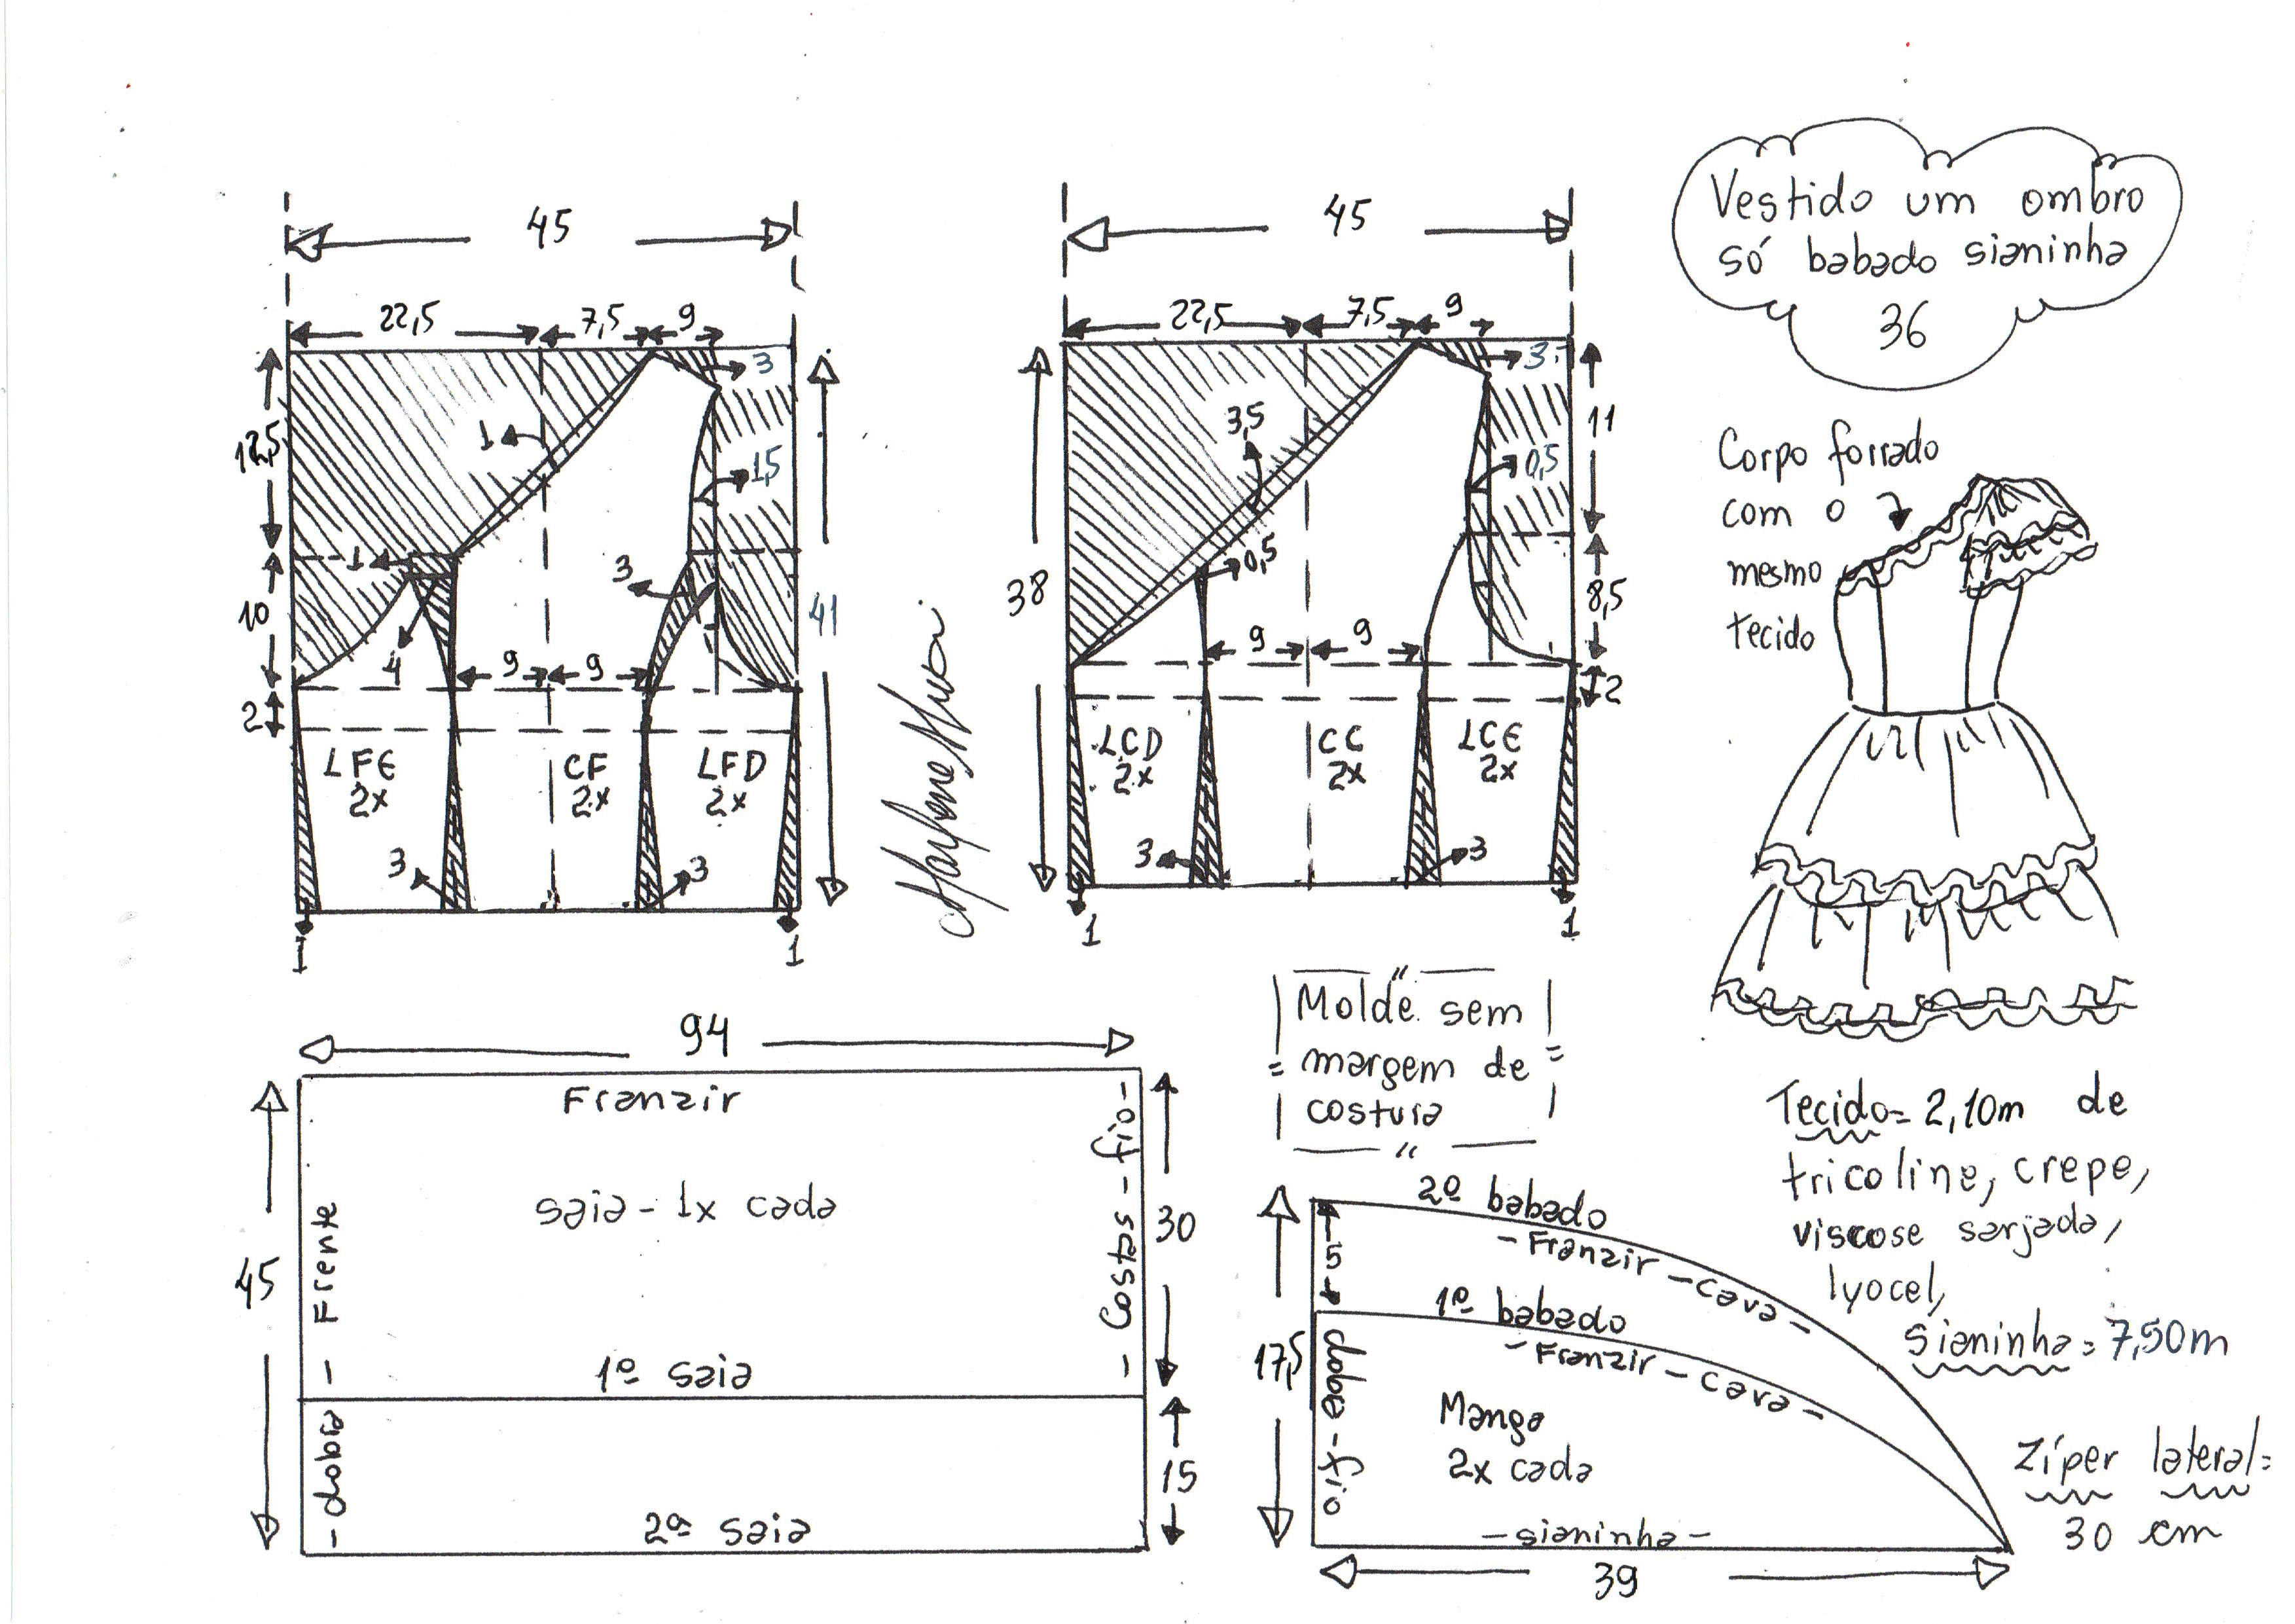 45
22,5
7,5
9
3
12,5
1
1,5
1
3
10
4
41
9
9
2
LFE
2x
CF
2x
LFD
2x
3
3
1
1
45
22,5
7,5
9
3
11
3,5
0,5
38
0,5
8,5
9
9
2
LCD
2x
CC
2x
LCE
2x
3
3
1
1
Vestido um ombro
só babado sianinha
36
Corpo forrado
com o
mesmo
tecido
94
Franzir
saia - 1x cada
45
- Frente
- dobra
- Costas - fio -
30
1ª saia
15
2ª saia
Molde sem
margem de
costura
2º babado
- Franzir - cava -
5
1º babado
- Franzir - cava -
17,5
dobra - fio
Manga
2x cada
- sianinha -
39
Tecido = 2,10m de
tricoline, crepe,
viscose sarjada,
lyocel,
sianinha = 7,50m
Zíper lateral =
30 cm